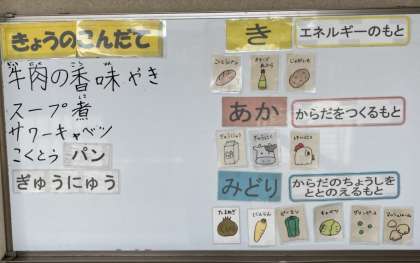 きょうのこんだて
牛肉の香味やき
スープ煮
サワーキャベツ
こくとう パン
ぎゅうにゅう
き
エネルギーのもと
じゃがいも
あか
からだをつくるもと
ぎゅうにゅう
ぎゅうにく
みどり
からだのちょうしを
ととのえるもと
たまねぎ
にんじん
ピーマン
キャベツ
グリンピース
マッシュルーム